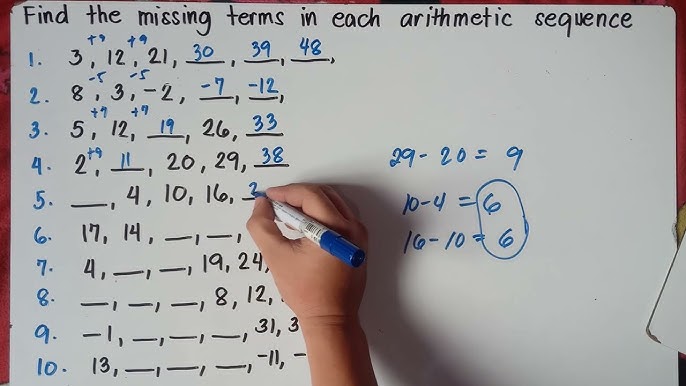 Find the missing terms in each arithmetic sequence
+9 +9
1. 3, 12, 21, 30, 39, 48,
-5 -5
2. 8, 3, -2, -7, -12,
+7 +7
3. 5, 12, 19, 26, 33
+9
4. 2, 11, 20, 29, 38
29 - 20 = 9
5. __, 4, 10, 16, 2
10 - 4 = 6
16 - 10 = 6
6. 17, 14, __, __,
7. 4, __, __, 19, 24,
8. __, __, __, 8, 12,
9. -1, __, __, __, 31, 3
10. 13, __, __, __, -11, -